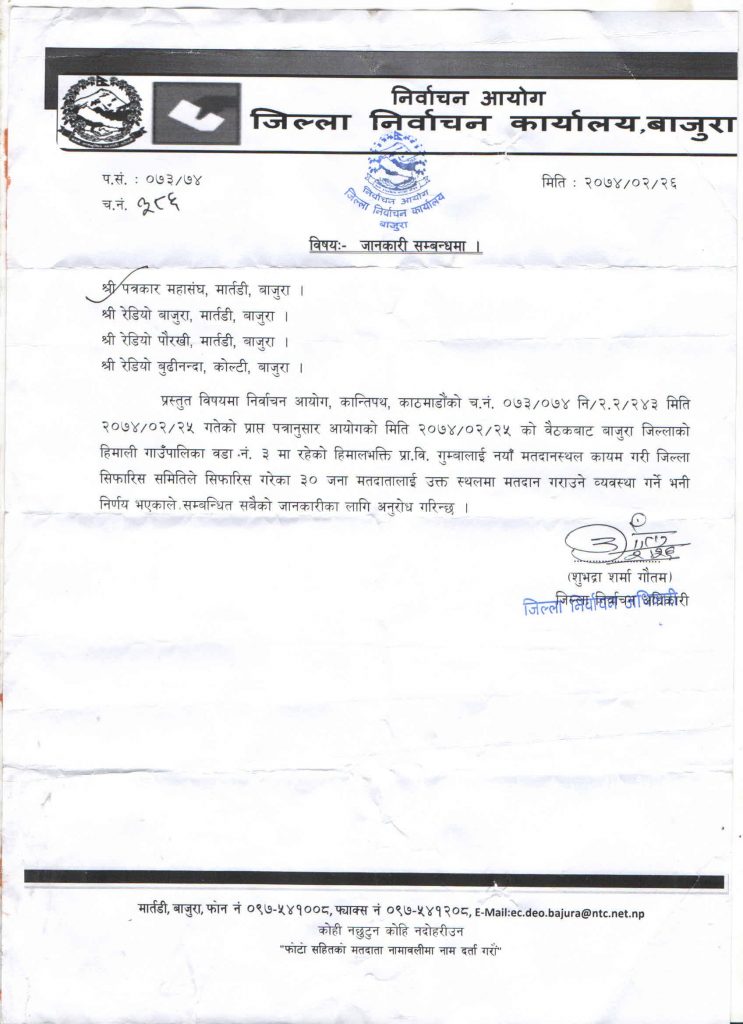 निर्वाचन आयोग
जिल्ला निर्वाचन कार्यालय,बाजुरा
प.सं. : ०७३/७४
मिति : २०७४/०२/२६
च.नं. ३८६
निर्वाचन आयोग
जिल्ला निर्वाचन कार्यालय
बाजुरा
विषयः- जानकारी सम्बन्धमा ।
श्री पत्रकार महासंघ, मार्तडी, बाजुरा ।
श्री रेडियो बाजुरा, मार्तडी, बाजुरा ।
श्री रेडियो पौरखी, मार्तडी, बाजुरा ।
श्री रेडियो बुढीनन्दा, कोल्टी, बाजुरा ।
प्रस्तुत विषयमा निर्वाचन आयोग, कान्तिपथ, काठमाडौंको च.नं. ०७३/०७४ नि/२.२/२४३ मिति
२०७४/०२/२५ गतेको प्राप्त पत्रानुसार आयोगको मिति २०७४/०२/२५ को वैठकबाट बाजुरा जिल्लाको
हिमाली गाउँपालिका वडा नं. ३ मा रहेको हिमालभक्ति प्रा.वि. गुम्बालाई नयाँ मतदानस्थल कायम गरी जिल्ला
सिफारिस समितिले सिफारिस गरेका ३० जना मतदातालाई उक्त स्थलमा मतदान गराउने व्यवस्था गर्ने भनी
निर्णय भएकाले सम्बन्धित सबैको जानकारीका लागि अनुरोध गरिन्छ ।
(शुभद्रा शर्मा गौतम)
जिल्ला निर्वाचन अधिकारी
जिल्ला निर्वाचन अधिकारी
मार्तडी, बाजुरा, फोन नं ०९७-५४१००८, फ्याक्स नं ०९७-५४१२०८, E-Mail:ec.deo.bajura@ntc.net.np
कोही नछुटुन कोहि नदोहरीउन
"फोटो सहितको मतदाता नामावलीमा नाम दर्ता गरौं"